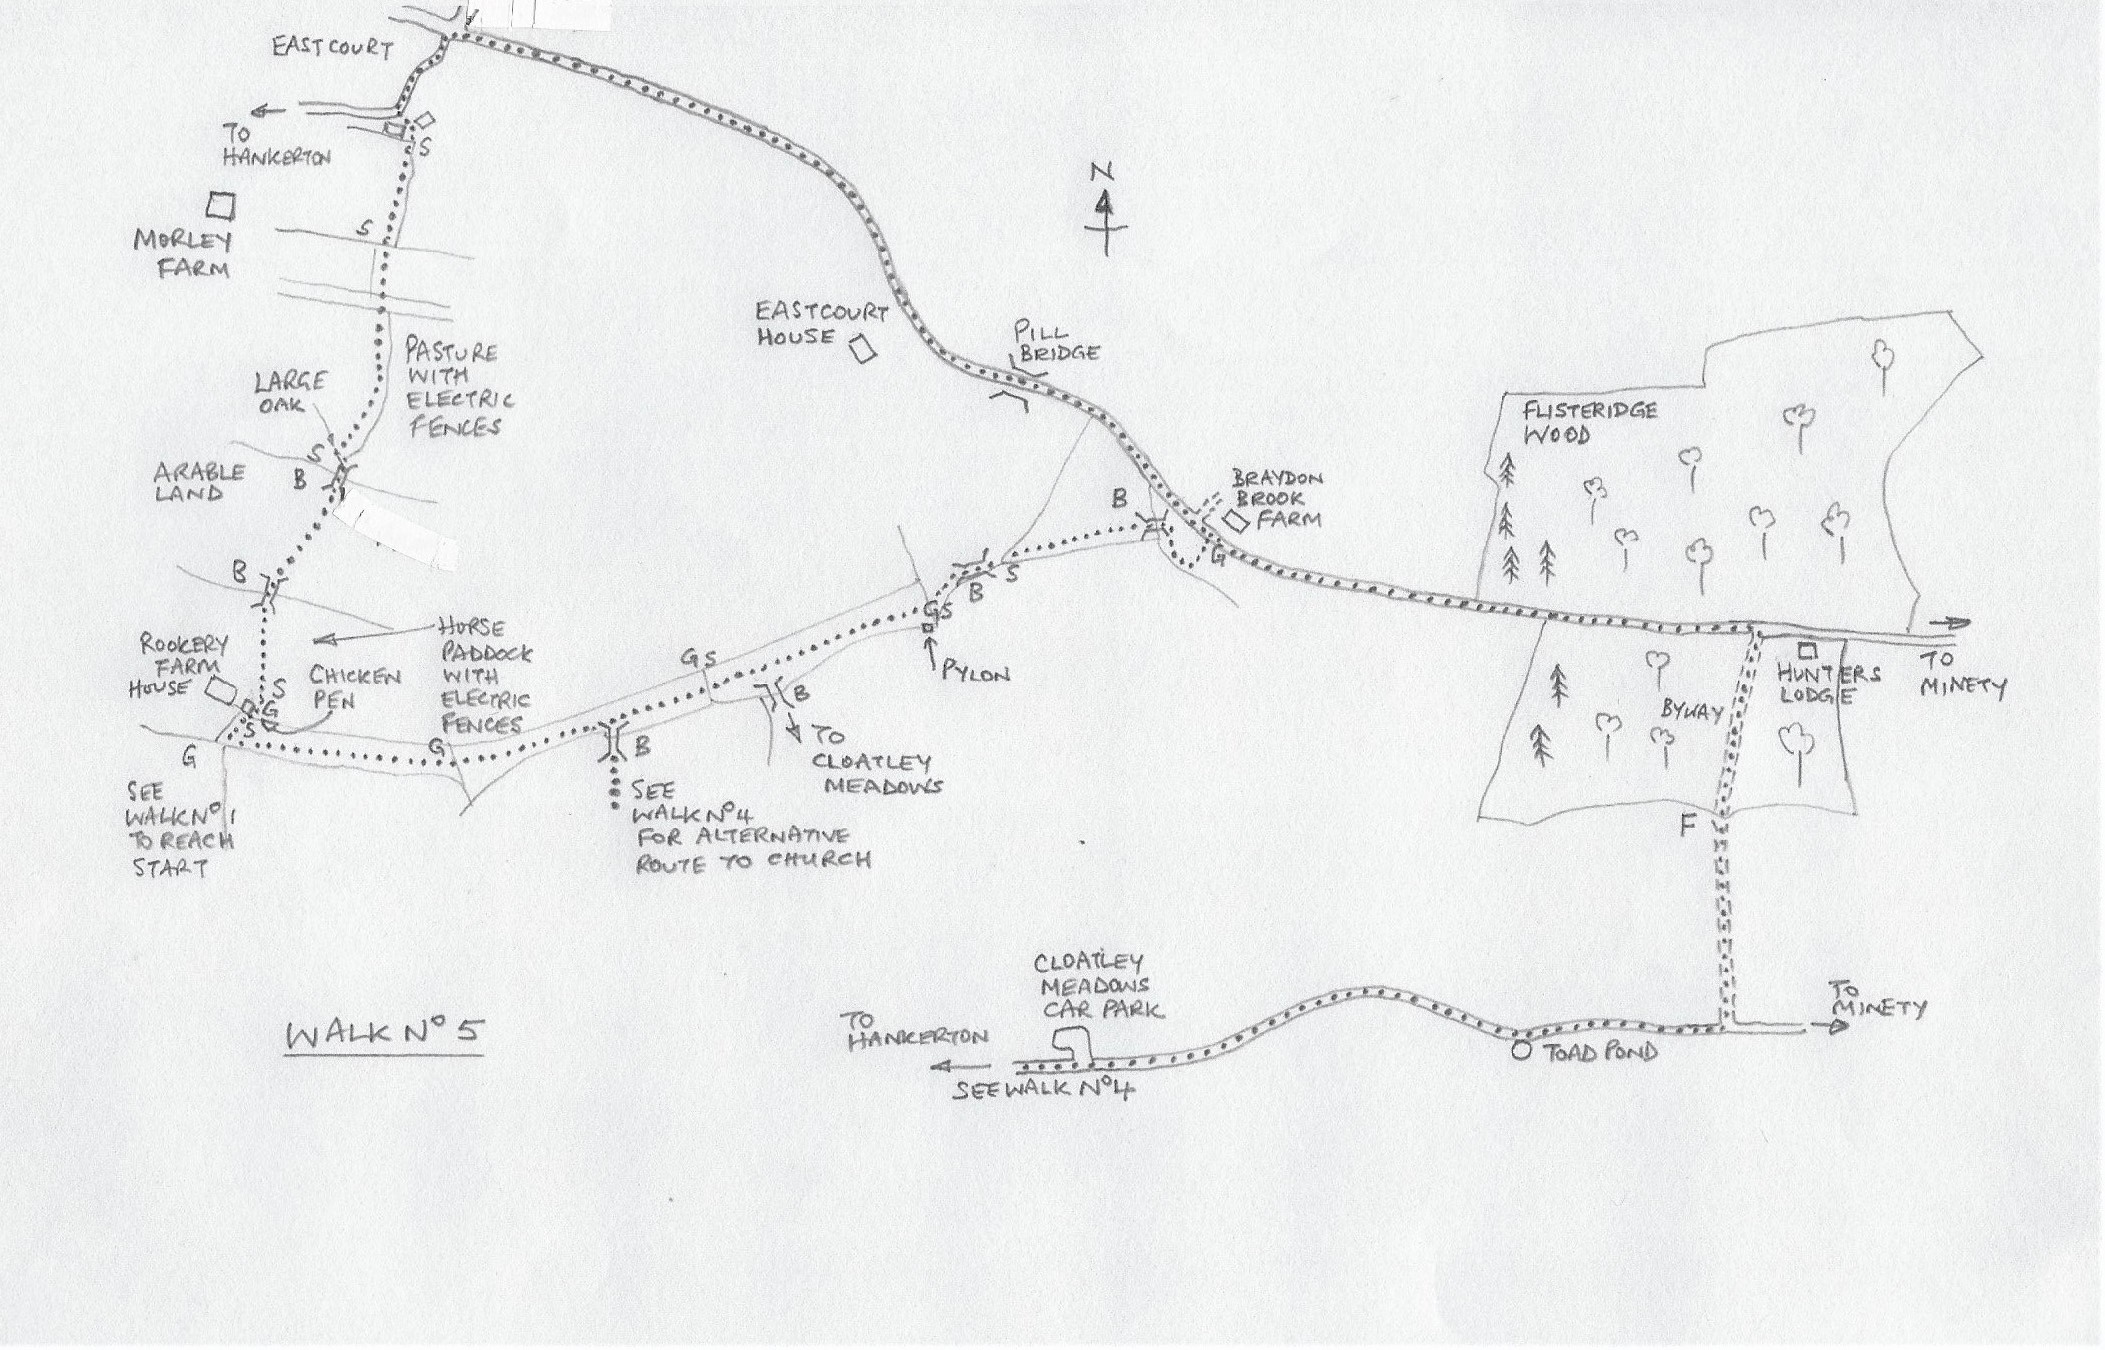 EASTCOURT
TO
HANKERTON
S
MORLEY
FARM
S
N
EASTCOURT
HOUSE
PILL
BRIDGE
PASTURE
WITH
ELECTRIC
FENCES
LARGE
OAK
S
B
ARABLE
LAND
FLISTERIDGE
WOOD
BRAYDON
BROOK
FARM
B
G
S
B
GS
PYLON
B
ROOKERY
FARM
HOUSE
CHICKEN
PEN
HORSE
PADDOCK
WITH
ELECTRIC
FENCES
S
G
S
G
G
GS
B
TO
CLOATLEY
MEADOWS
B
SEE
WALK Nº 4
FOR ALTERNATIVE
ROUTE TO CHURCH
SEE
WALK Nº 1
TO REACH
START
HUNTERS
LODGE
TO
MINETY
BYWAY
F
CLOATLEY
MEADOWS
CAR PARK
TO
HANKERTON
SEE WALK Nº 4
TOAD POND
TO
MINETY
WALK Nº 5